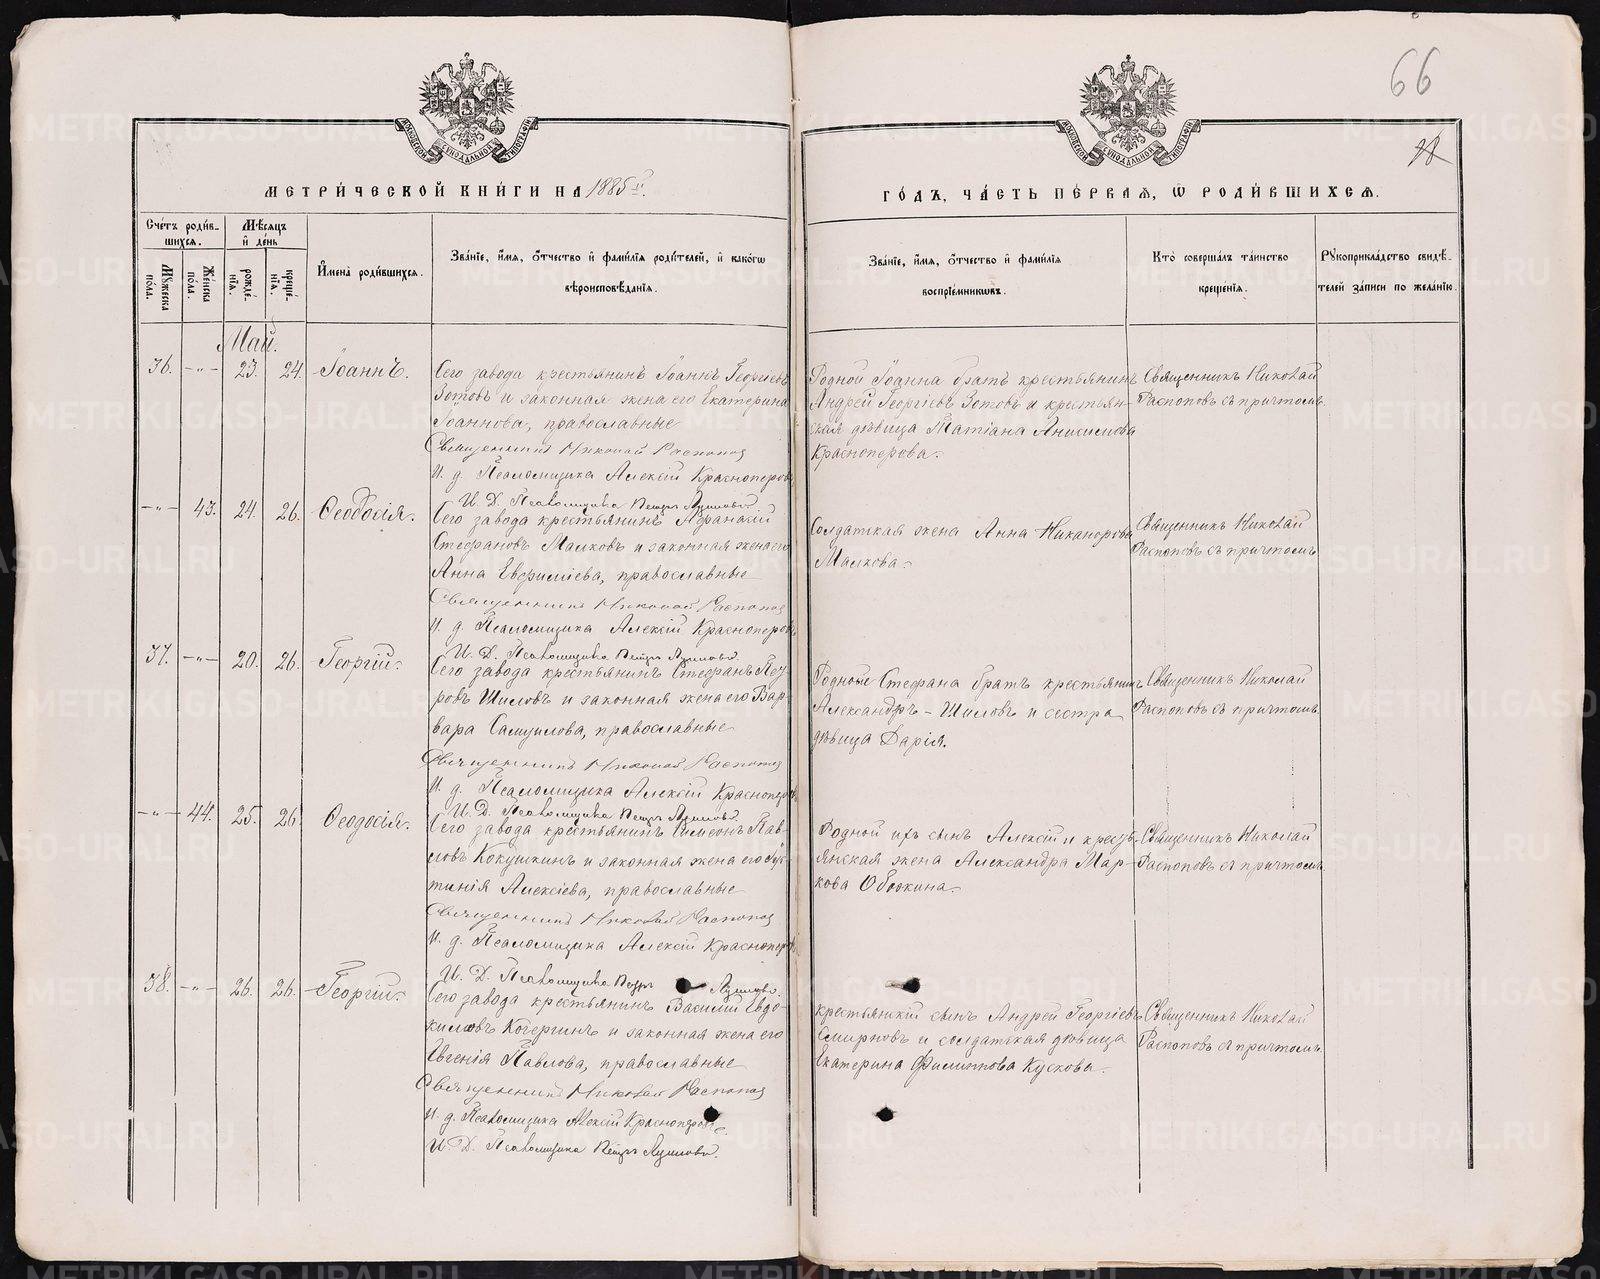 66
28
МЕТРИ́ЧЕСКОЙ КНИ́ГИ НА 1885 г.
ГО́ДЪ, ЧА́СТЬ ПЕ́РВАЯ, Ѡ РОДИ́ВШИХСЯ.
Сче́тъ роди́в-
шихся.
Мѣ́сяцъ
и҆ де́нь
Му́жеска по́ла.
Же́нска по́ла.
рожде́нїя.
креще́нїя.
И҆мена̀ роди́вшихся.
Зва́нїе, и҆́мя, ѻ҆́тчество и҆ фами́лїя роди́телей, и҆ како́гѡ
вѣроисповѣ́данїя.
Зва́нїе, и҆́мя, ѻ҆́тчество и҆ фами́лїя
воспрїе́мникѡвъ.
Кто̀ соверша́лъ та́инство
креще́нїя.
Рꙋкоприкла́дство свидѣ́-
телей за́писи по жела́нїю.
Май.
36. -„- 23. 24. Іоаннъ.
Сего завода крестьянинъ Іоаннъ Георгіевъ
Зотовъ и законная жена его Екатерина
Іоаннова, православные
Священникъ Николай Распопов
И. д. Псаломщика Алексій Красноперов
И. Д. Псаломщика Петръ
Родной Іоанна братъ крестьянинъ
Андрей Георгіевъ Зотовъ и крестьян-
ская дѣвица Татіана Анисимова
Красноперова.
Священникъ Николай
Распоповъ съ причтомъ.
-„- 43. 24. 26. Ѳеодосія.
Сего завода крестьянинъ Афанасій
Стефановъ Малковъ и законная жена его
Анна Евфиміева, православные
Священникъ Николай Распопов
И. д. Псаломщика Алексій Красноперовъ
И. Д. Псаломщика Петръ
Солдатская жена Анна Никанорова
Малкова.
Священникъ Николай
Распоповъ съ причтомъ
37. -„- 20. 26. Георгій.
Сего завода крестьянинъ Стефанъ Пет-
ровъ Шиловъ и законная жена его Вар-
вара Самуилова, православные
Священникъ Николай Распопов
И. д. Псаломщика Алексій Красноперов
И. Д. Псаломщика Петръ
Родной Стефана братъ крестьянинъ
Александръ - Шиловъ и сестра
дѣвица Дарія.
Священникъ Николай
Распоповъ съ причтомъ.
-„- 44. 25. 26. Ѳеодосія.
Сего завода крестьянинъ Симеонъ Пав-
ловъ Кокушкинъ и законная жена его Іус-
тинія Алексіева, православные
Священникъ Николай Распопов
И. д. Псаломщика Алексій Красноперов
И. Д. Псаломщика Петръ
Родной ихъ сынъ Алексій и кресть-
янская жена Александра Мар-
кова
Священникъ Николай
Распоповъ съ причтомъ
38. -„- 26. 26. Георгій.
Сего завода крестьянинъ Василій Евдо-
кимовъ Кочергинъ и законная жена его
Евгенія Павлова, православные
Священникъ Николай Распопов
И. д. Псаломщика Алексій Красноперов
И. Д. Псаломщика Петръ
крестьянскій сынъ Андрей Георгіевъ
Смирновъ и солдатская дѣвица
Екатерина Филиппова Кускова.
Священникъ Николай
Распоповъ съ причтомъ.
METRIKI.GASO-URAL.RU